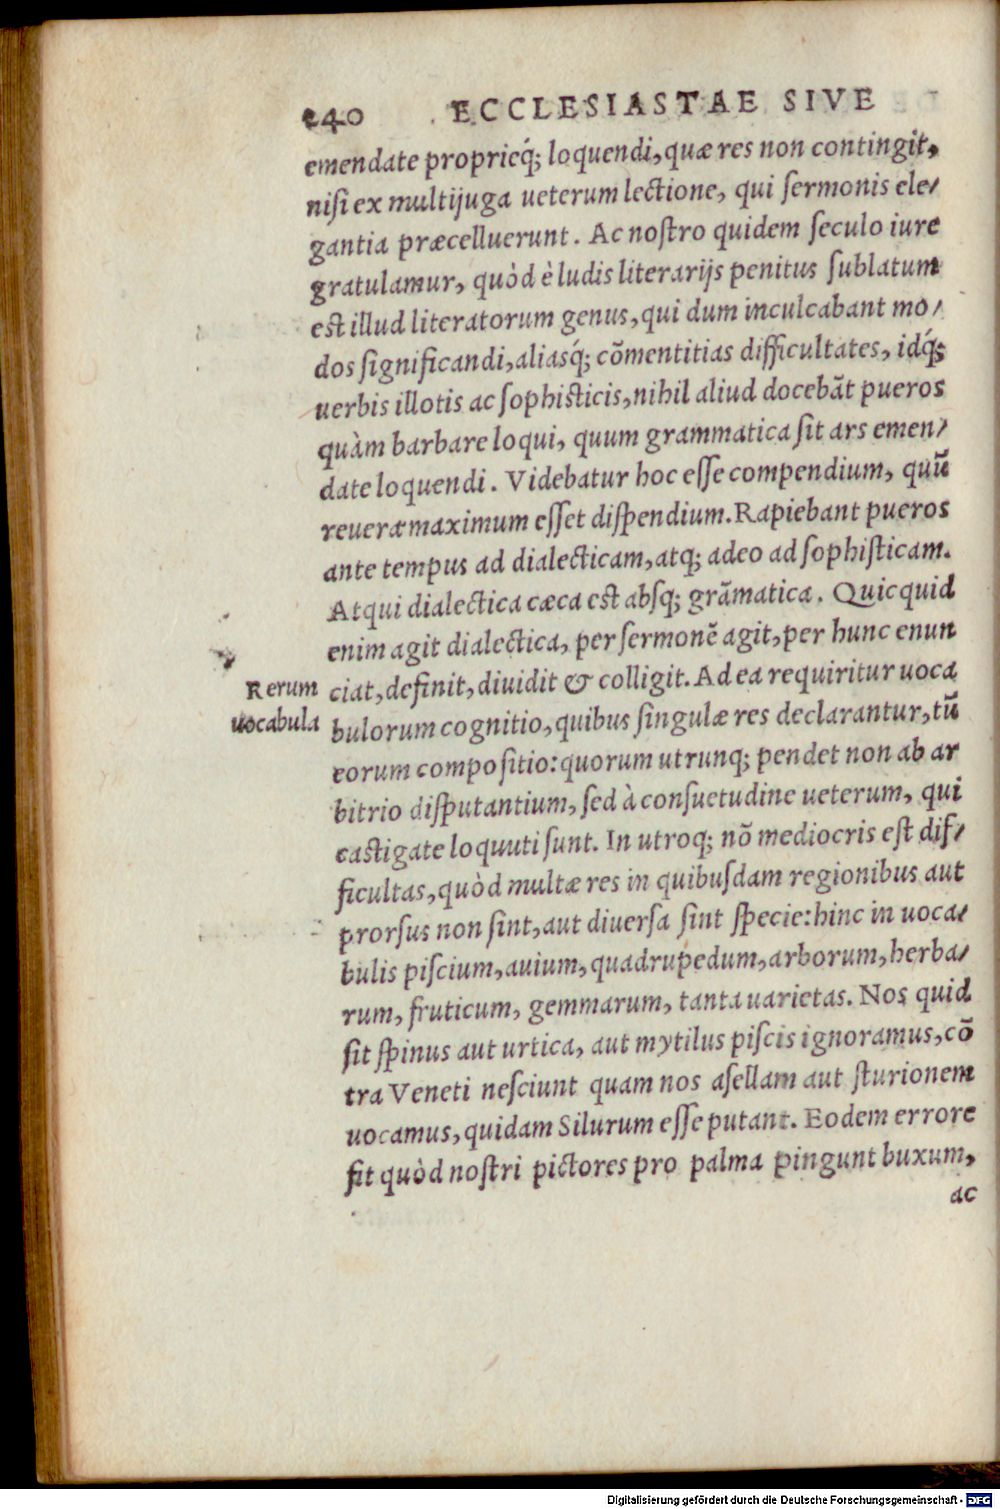 240 ECCLESIASTAE SIVE
emendate proprieq́; loquendi, quæ res non contingit,
nisi ex multijuga ueterum lectione, qui sermonis ele/
gantia præcelluerunt. Ac nostro quidem seculo iure
gratulamur, quòd è ludis literarijs penitus sublatum
est illud literatorum genus, qui dum inculcabant mo/
dos significandi, aliasq́; cōmentitias difficultates, idq́;
uerbis illotis ac sophisticis, nihil aliud docebāt pueros
quàm barbare loqui, quum grammatica sit ars emen/
date loquendi. Videbatur hoc esse compendium, quū
reuera maximum esset dispendium. Rapiebant pueros
ante tempus ad dialecticam, atq; adeo ad sophisticam.
Atqui dialectica cæca est absq; grāmatica. Quicquid
enim agit dialectica, per sermonē agit, per hunc enun
Rerum uocabula
ciat, definit, diuidit & colligit. Ad ea requiritur uoca
bulorum cognitio, quibus singulæ res declarantur, tū
eorum compositio: quorum utrunq; pendet non ab ar
bitrio disputantium, sed à consuetudine ueterum, qui
castigate loquuti sunt. In utroq; nō mediocris est dif/
ficultas, quòd multæ res in quibusdam regionibus aut
prorsus non sint, aut diuersa sint specie: hinc in uoca/
bulis piscium, auium, quadrupedum, arborum, herba/
rum, fruticum, gemmarum, tanta uarietas. Nos quid
sit spinus aut urtica, aut mytilus piscis ignoramus, cō
tra Veneti nesciunt quam nos asellam aut sturionem
uocamus, quidam Silurum esse putant. Eodem errore
fit quòd nostri pictores pro palma pingunt buxum,
ac
Digitalisierung gefördert durch die Deutsche Forschungsgemeinschaft - DFG